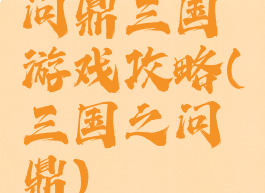 问鼎三国
游戏攻略(
三国之问
鼎)